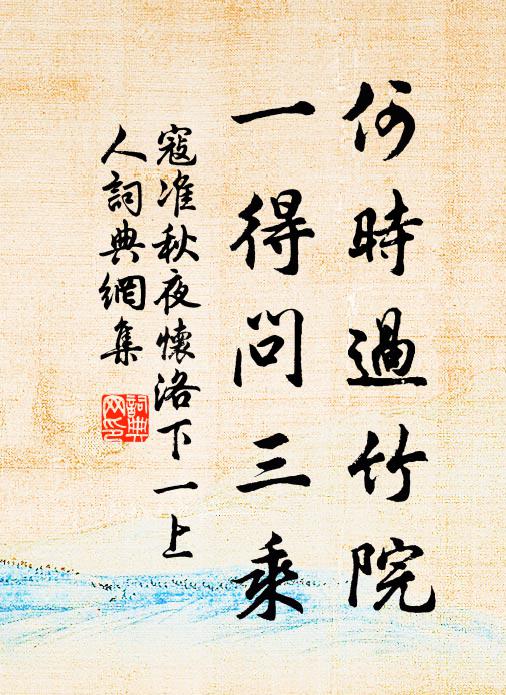 何時過竹院
一得問三乘
寇准秋夜懷洛下一上
人詞典網集
詞典
网印